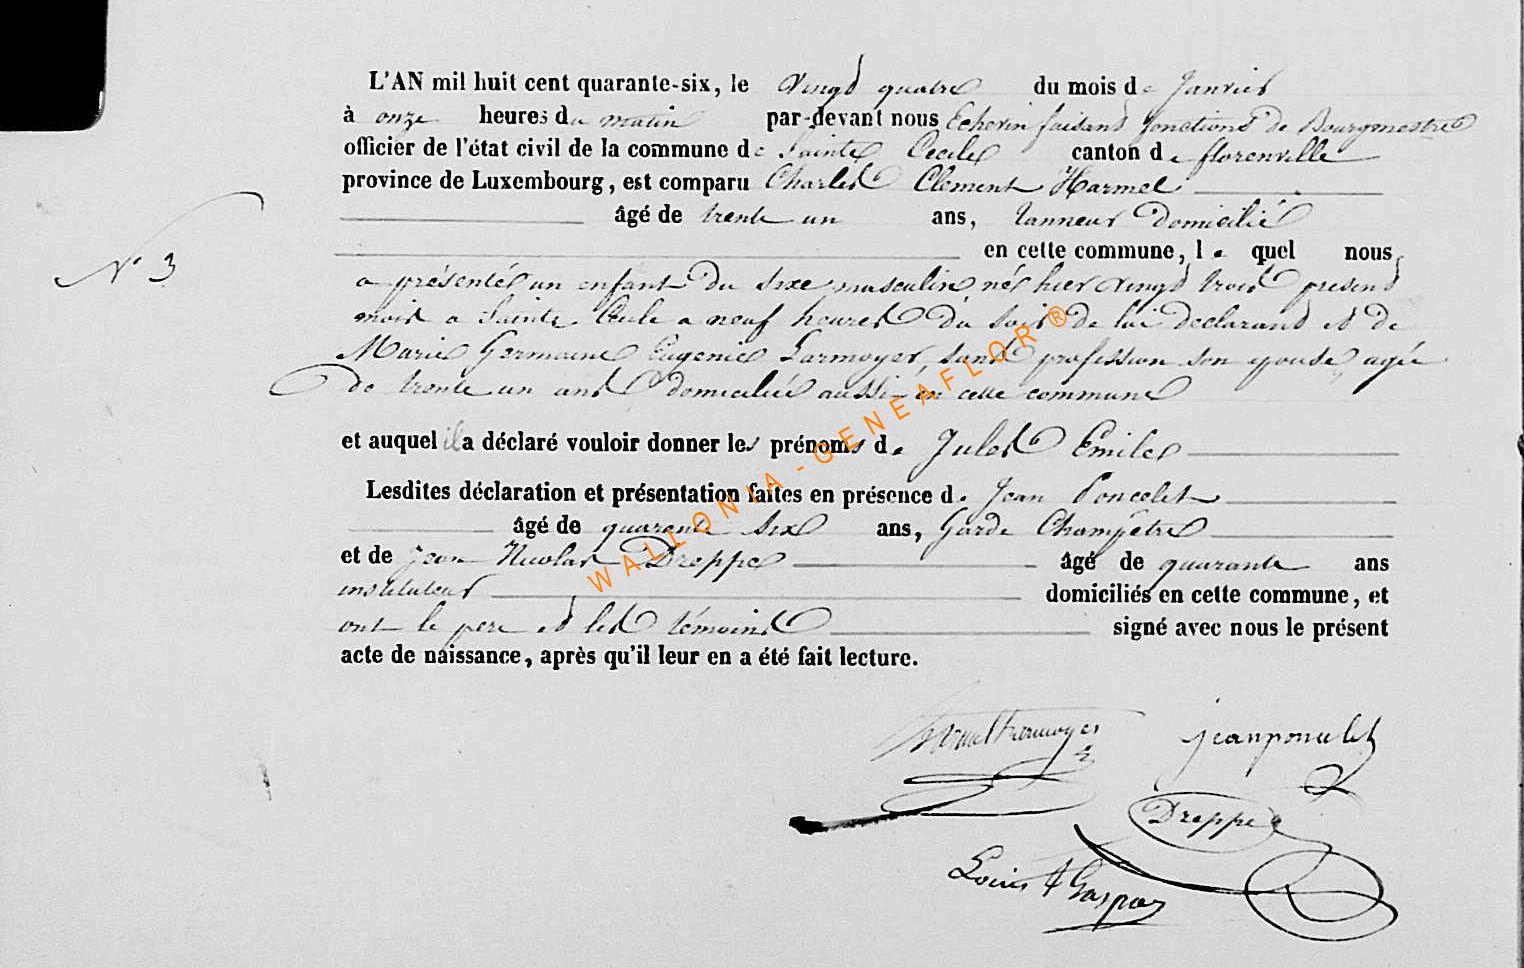 L'AN mil huit cent quarante-six, le vingt quatre du mois de Janvier
à onze heures du matin par-devant nous Echevin faisand fonctions de Bourgmestre
officier de l'état civil de la commune de Sainte Cecile canton de florenville
province de Luxembourg, est comparu Charles Clement Harmel
âgé de trente un ans, tanneur domicilié
en cette commune, lequel nous
N° 3
a présentés un enfant du sixe masculin nés hier vingt trois présend
mois a Sainte Cecile a neuf heures du soir de lui declarand et de
Marie Germaine Eugenie Larmoyer, sans profession son epouse agée
de trente un ans domiciliée aussi en cette commune
et auquel il a déclaré vouloir donner les prénoms de Jules Emile
Lesdites déclaration et présentation faites en présence de Jean Poncelet
âgé de quarante six ans, Garde Champêtre
et de Jean Nicolas Dreppe âgé de quarante ans
instituteur domiciliés en cette commune, et
ont le pere et les témoins signé avec nous le présent
acte de naissance, après qu'il leur en a été fait lecture.
WALLONIA - GENEAFLOR ®
jean poncelet
Dreppe
Louis Gaspar